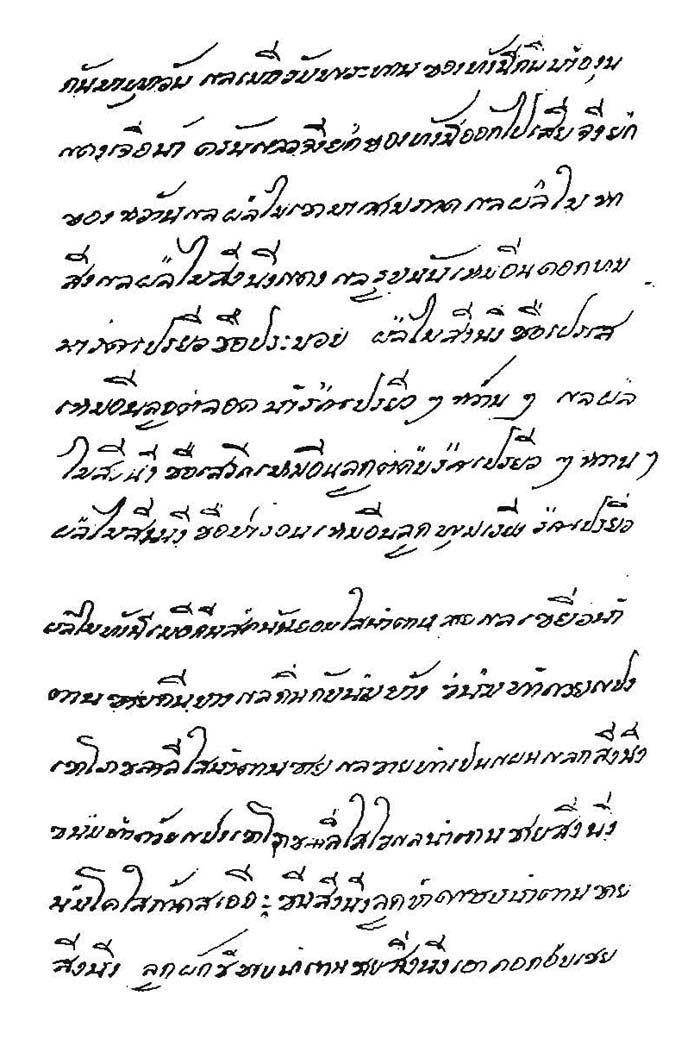 ทุกวัน แลเมื่อรับพระทาน ของทังนี้กินน้ำองุน
แดงเจือน้ำ ครั้นแล้วจึ่งยกของทังนี้ออกไปเสีย จึ่งยก
ของหวานแลผลไม แลผลไม หา
สิ่งแลผลไมสิ่งนึ่งแดง แลรูบนั้นเหมือนดอก
รสเปรียว ชือประบวย ผลไมสิ่งนึ่ง ชือเปรส
เหมือนลูกตลอด น้ำรสเปรียว ๆ หวาน ๆ แลผล
ไมสิ่งนึ่ง ชือเสรีสเหมือนลูกตคบรสเปรียว ๆ หวาน ๆ
ผลไมสิ่งนึ่ง ชือ เหมือนลูกพุมเรียง รสเปรียว
ผลไมทังนี้เมือกินสดนั้นยอมใสน้ำตาน ทราย แลเชือมน้ำ
ตานทรายกินบาง แลกินกับนมบาง ขนมทำดวยแปง
เขาโภชสาลีใสน้ำตานทราย ทำเปนแผน สิ่งนึ่ง
ขนมทำดวยแปงเขาโภชสาลีใสไขแลน้ำตานทรายสิ่งนึ่ง
นมโคใส สิ่งนึ่งลูก น้ำตานทราย
สิ่งนึ่ง ลูกผักชีชาบน้ำตานทรายสิ่งนึ่งเอาดอกอบเชย